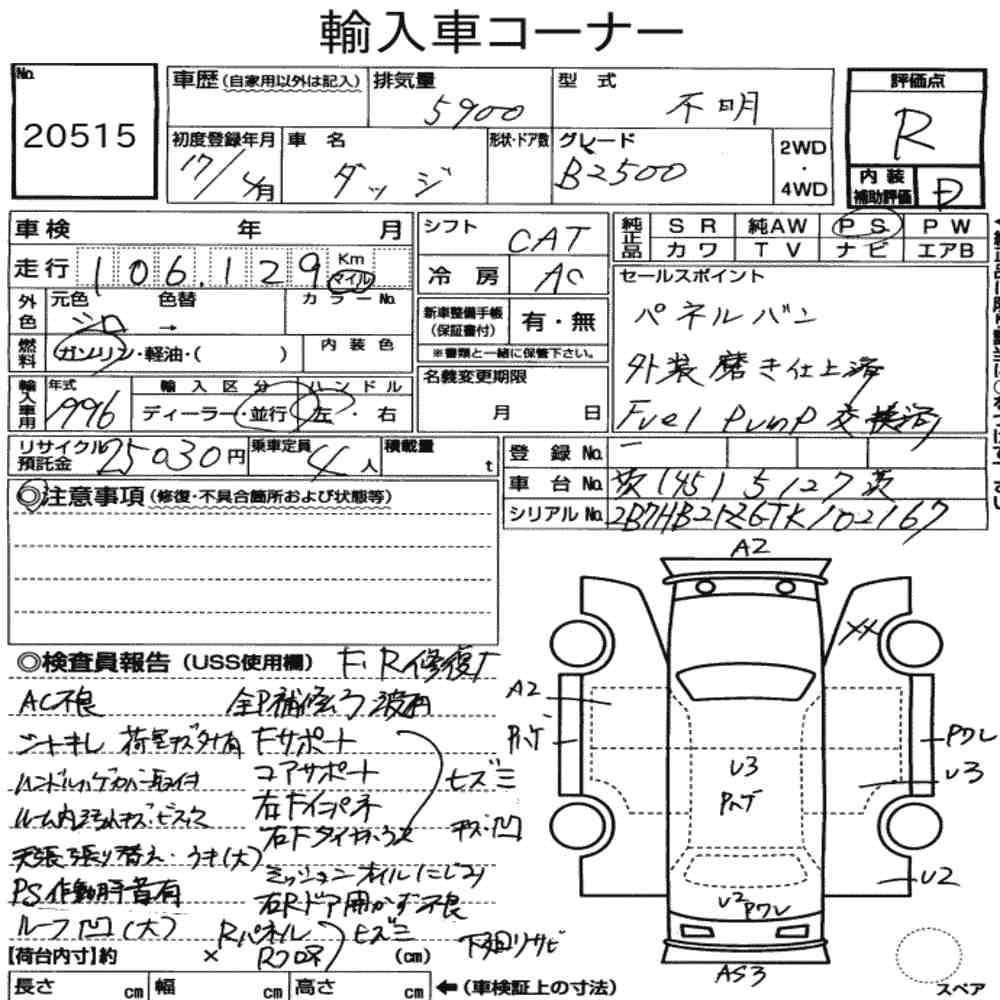 輸入車コーナー
No. 20515
車歴(自家用以外は記入) 排気量 5900 型式 不明
評価点 R
初度登録年月 17/4月 車名 ダッジ 形状・ドア数 グレード B2500 2WD・4WD
内装補助評価 D
車検 年 月
シフト CAT
純正品 SR 純AW PS PW
カワ TV ナビ エアB
走行 106,129 Km マイル
冷房 AC
セールスポイント
パネルバン
外装磨き仕上済
Fuel Pump 交換済
外色 元色 シロ 色替 → カラーNo.
新車整備手帳(保証書付) 有・無
※書類と一緒に保管下さい。
燃料 ガソリン・軽油・( ) 内装色
輸入車用 年式 1996 輸入区分 ディーラー・並行 ハンドル 左・右
名義変更期限 月 日
リサイクル預託金 25030円 乗車定員 4人 積載量 t
登録No. ー
車台No. 茨[45]5127茨
シリアルNo. 2B7HB21Z6TK102167
◎注意事項(修復・不具合箇所および状態等)
◎検査員報告(USS使用欄) F、R修復
AC不良
ジャキレ 荷室キズ 有
ハンドルハゲカバー取付
天張張り替え・うき(大)
PS作動時音有
ルーフ凹(大)
Fサポート
コアサポート
右Fインパネ
ヒズミ
キズ・凹
ミッションオイルにじみ
右Rドア開かず不良
Rパネル
Rフロア
ヒズミ
下廻りサビ
【荷台内寸】約 × (cm)
長さ cm 幅 cm 高さ cm ←(車検証上の寸法)
A2
XX
A2
U3
U3
U2
U2
AS3
スペア